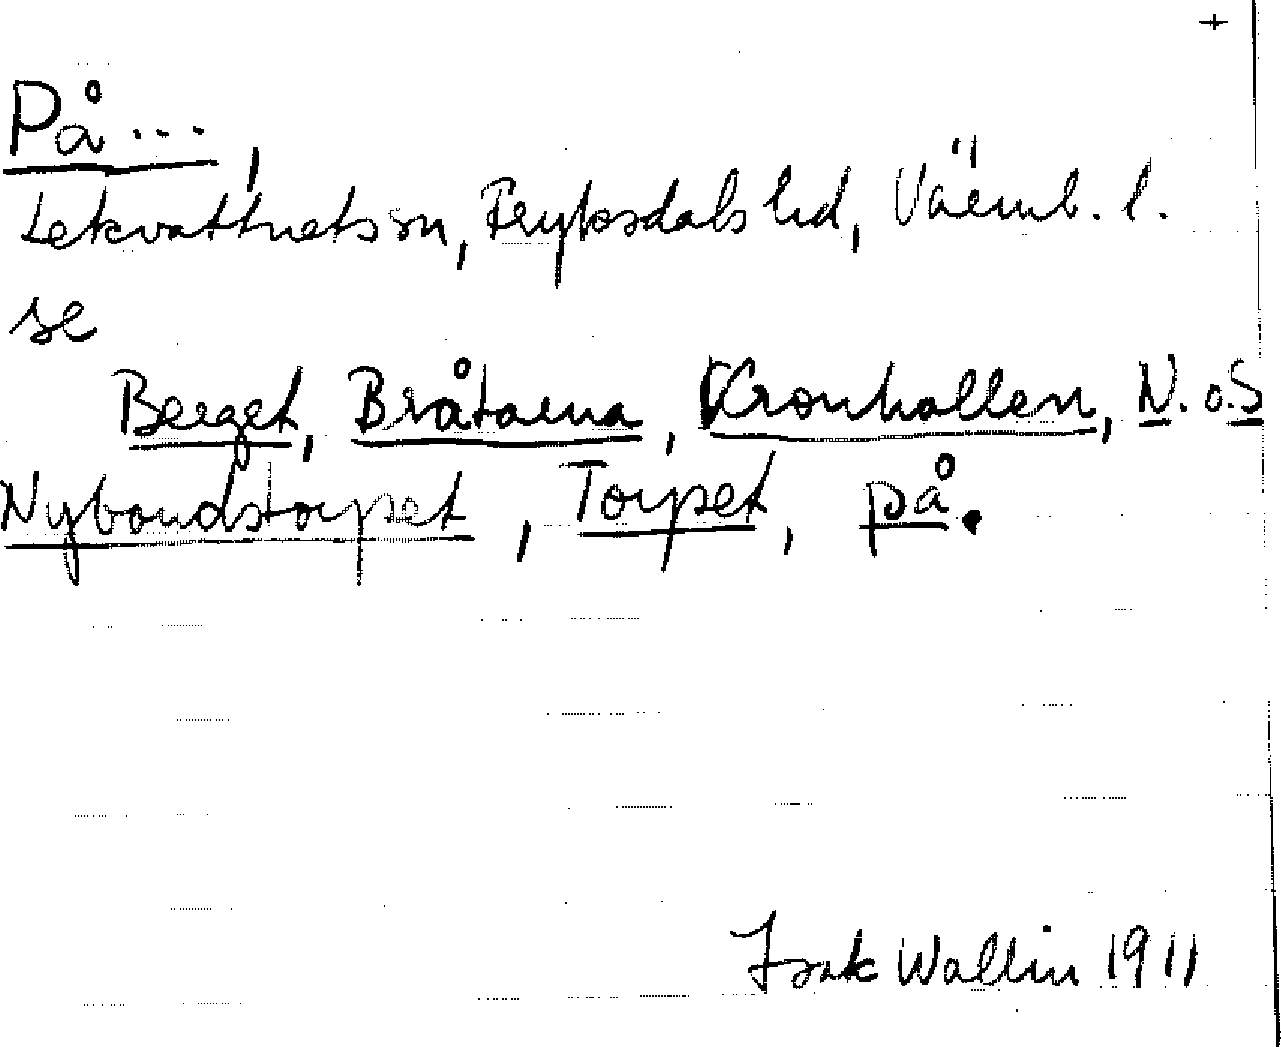 +
På...,
Lekvattnets sn, Fryksdals hd, Värml. l.
se
Berget, Bråtarna, Kronhallen, N. o. S
Nybondstorpet, Torpet, på.
Isak Wallin 1911